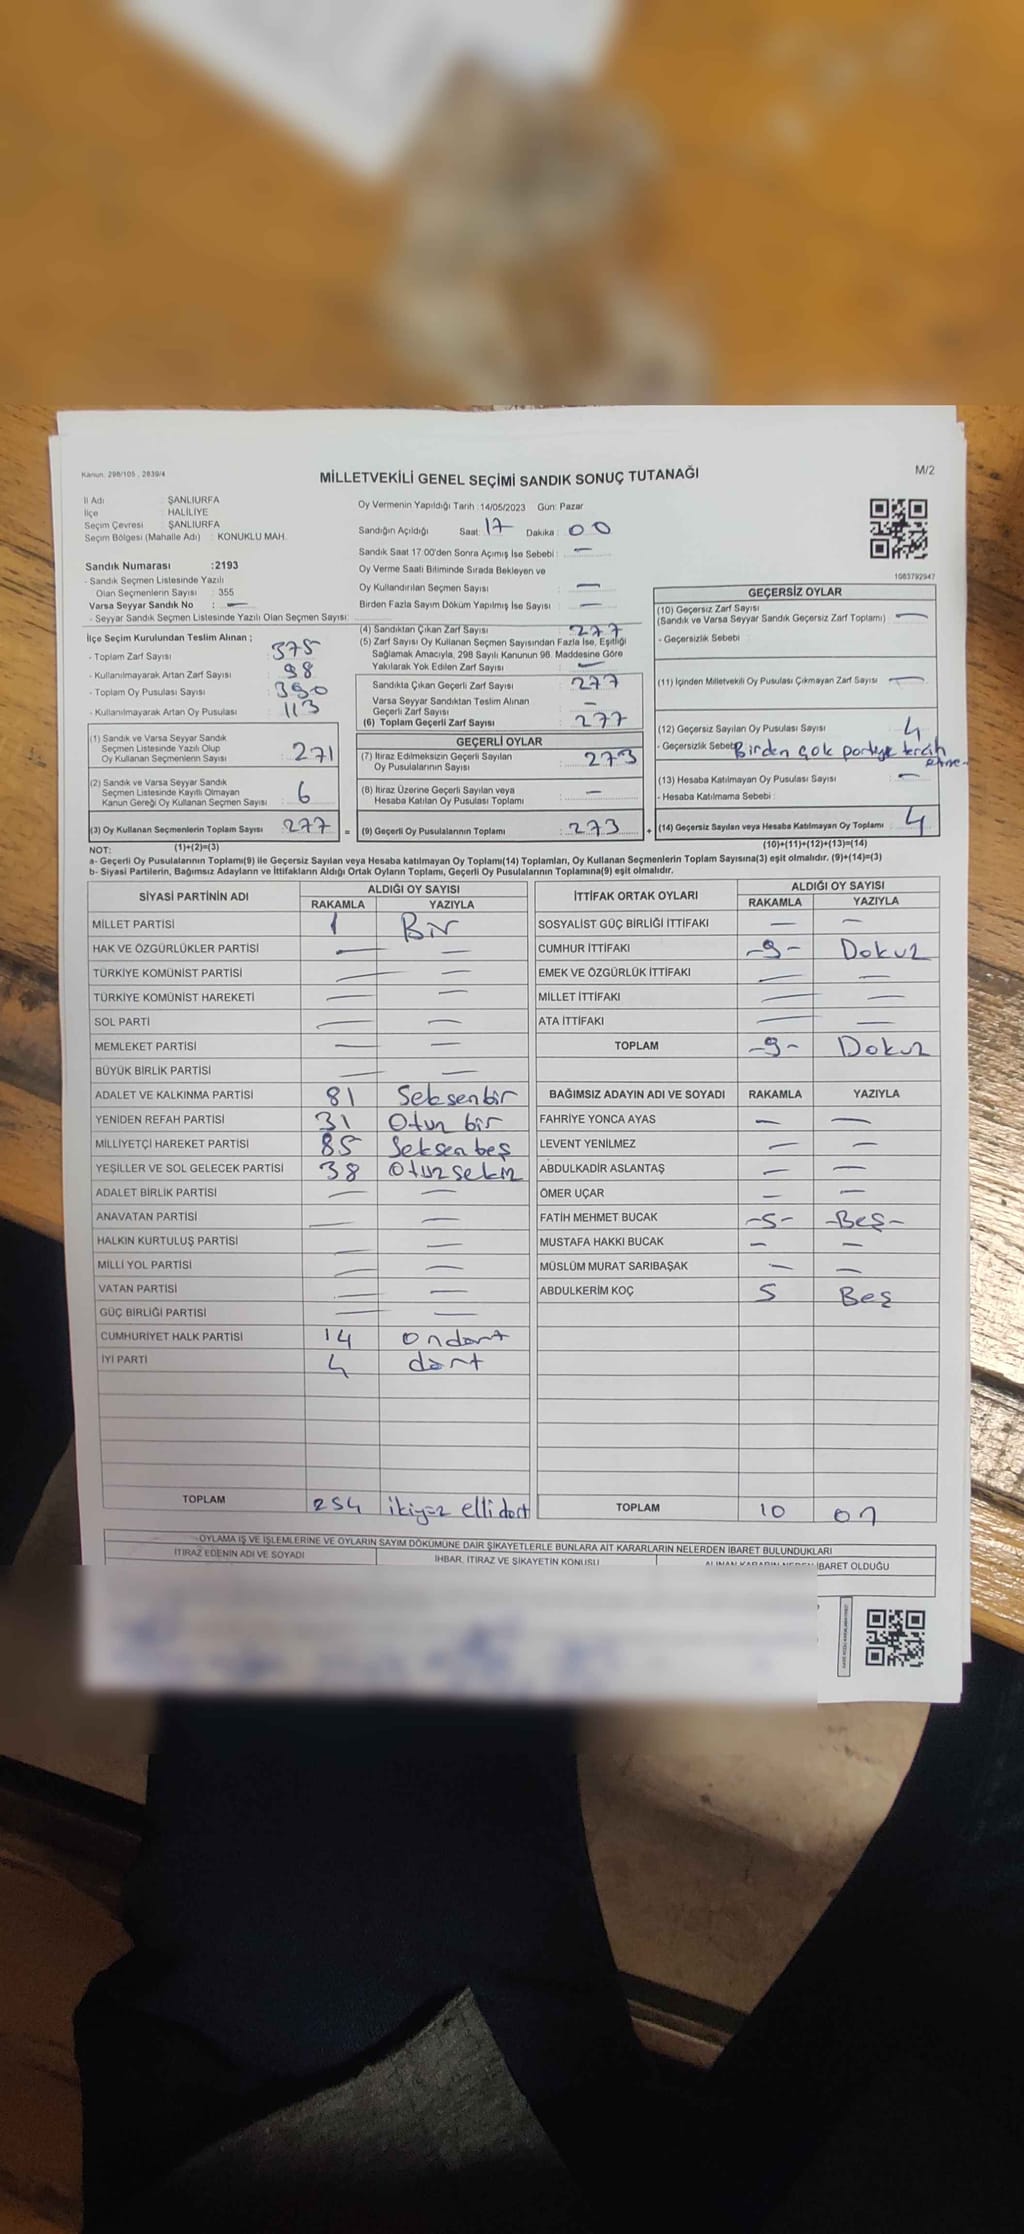 Kanun. 298/105 , 2839/4
MİLLETVEKİLİ GENEL SEÇİMİ SANDIK SONUÇ TUTANAĞI
M/2
İl Adı : ŞANLIURFA
İlçe : HALİLİYE
Seçim Çevresi : ŞANLIURFA
Seçim Bölgesi (Mahalle Adı) : KONUKLU MAH.
Sandık Numarası :2193
- Sandık Seçmen Listesinde Yazılı
Olan Seçmenlerin Sayısı : 355
Varsa Seyyar Sandık No : —
- Seyyar Sandık Seçmen Listesinde Yazılı Olan Seçmen Sayısı:
Oy Vermenin Yapıldığı Tarih :14/05/2023 Gün: Pazar
Sandığın Açıldığı Saat: 17 Dakika : 00
Sandık Saat 17:00'den Sonra Açımış İse Sebebi : —
Oy Verme Saati Bitiminde Sırada Bekleyen ve
Oy Kullandırılan Seçmen Sayısı : —
Birden Fazla Sayım Döküm Yapılmış İse Sayısı : —
1063792947
İlçe Seçim Kurulundan Teslim Alınan ;
- Toplam Zarf Sayısı : 375
- Kullanılmayarak Artan Zarf Sayısı : 98
- Toplam Oy Pusulası Sayısı : 390
- Kullanılmayarak Artan Oy Pusulası : 113
(1) Sandık ve Varsa Seyyar Sandık
Seçmen Listesinde Yazılı Olup
Oy Kullanan Seçmenlerin Sayısı : 271
(2) Sandık ve Varsa Seyyar Sandık
Seçmen Listesinde Kayıtlı Olmayan
Kanun Gereği Oy Kullanan Seçmen Sayısı : 6
(3) Oy Kullanan Seçmenlerin Toplam Sayısı : 277 =
(4) Sandıktan Çıkan Zarf Sayısı : 277
(5) Zarf Sayısı Oy Kullanan Seçmen Sayısından Fazla İse, Eşitliği
Sağlamak Amacıyla, 298 Sayılı Kanunun 98. Maddesine Göre
Yakılarak Yok Edilen Zarf Sayısı : —
Sandıkta Çıkan Geçerli Zarf Sayısı : 277
Varsa Seyyar Sandıktan Teslim Alınan
Geçerli Zarf Sayısı : —
(6) Toplam Geçerli Zarf Sayısı : 277
GEÇERLİ OYLAR
(7) İtiraz Edilmeksizin Geçerli Sayılan
Oy Pusulalarının Sayısı : 273
(8) İtiraz Üzerine Geçerli Sayılan veya
Hesaba Katılan Oy Pusulası Toplamı : —
(9) Geçerli Oy Pusulalarının Toplamı : 273 +
GEÇERSİZ OYLAR
(10) Geçersiz Zarf Sayısı
(Sandık ve Varsa Seyyar Sandık Geçersiz Zarf Toplamı) : —
- Geçersizlik Sebebi :
(11) İçinden Milletvekili Oy Pusulası Çıkmayan Zarf Sayısı : —
(12) Geçersiz Sayılan Oy Pusulası Sayısı : 4
- Geçersizlik Sebebi: Birden çok partiye tercih
etme-
(13) Hesaba Katılmayan Oy Pusulası Sayısı : —
- Hesaba Katılmama Sebebi :
(14) Geçersiz Sayılan veya Hesaba Katılmayan Oy Toplamı : 4
NOT: (1)+(2)=(3) (10)+(11)+(12)+(13)=(14)
a- Geçerli Oy Pusulalarının Toplamı(9) ile Geçersiz Sayılan veya Hesaba katılmayan Oy Toplamı(14) Toplamları, Oy Kullanan Seçmenlerin Toplam Sayısına(3) eşit olmalıdır. (9)+(14)=(3)
b- Siyasi Partilerin, Bağımsız Adayların ve İttifakların Aldığı Ortak Oyların Toplamı, Geçerli Oy Pusulalarının Toplamına(9) eşit olmalıdır.
SİYASİ PARTİNİN ADI ALDIĞI OY SAYISI
RAKAMLA YAZIYLA
MİLLET PARTİSİ 1 Bir
HAK VE ÖZGÜRLÜKLER PARTİSİ — —
TÜRKİYE KOMÜNİST PARTİSİ — —
TÜRKİYE KOMÜNİST HAREKETİ — —
SOL PARTİ — —
MEMLEKET PARTİSİ — —
BÜYÜK BİRLİK PARTİSİ — —
ADALET VE KALKINMA PARTİSİ 81 Seksenbir
YENİDEN REFAH PARTİSİ 31 Otuz bir
MİLLİYETÇİ HAREKET PARTİSİ 85 Seksen beş
YEŞİLLER VE SOL GELECEK PARTİSİ 38 Otuzsekiz
ADALET BİRLİK PARTİSİ — —
ANAVATAN PARTİSİ — —
HALKIN KURTULUŞ PARTİSİ — —
MİLLİ YOL PARTİSİ — —
VATAN PARTİSİ — —
GÜÇ BİRLİĞİ PARTİSİ — —
CUMHURİYET HALK PARTİSİ 14 ondört
İYİ PARTİ 4 dört
TOPLAM 254 ikiyüz ellidört
İTTİFAK ORTAK OYLARI ALDIĞI OY SAYISI
RAKAMLA YAZIYLA
SOSYALİST GÜÇ BİRLİĞİ İTTİFAKI — —
CUMHUR İTTİFAKI -9- Dokuz
EMEK VE ÖZGÜRLÜK İTTİFAKI — —
MİLLET İTTİFAKI — —
ATA İTTİFAKI — —
TOPLAM -9- Dokuz
BAĞIMSIZ ADAYIN ADI VE SOYADI RAKAMLA YAZIYLA
FAHRİYE YONCA AYAS — —
LEVENT YENİLMEZ — —
ABDULKADİR ASLANTAŞ — —
ÖMER UÇAR — —
FATİH MEHMET BUCAK -5- -Beş-
MUSTAFA HAKKI BUCAK — —
MÜSLÜM MURAT SARIBAŞAK — —
ABDULKERİM KOÇ 5 Beş
TOPLAM 10 on
OYLAMA İŞ VE İŞLEMLERİNE VE OYLARIN SAYIM DÖKÜMÜNE DAİR ŞİKAYETLERLE BUNLARA AİT KARARLARIN NELERDEN İBARET BULUNDUKLARI
İTİRAZ EDENİN ADI VE SOYADI İHBAR, İTİRAZ VE ŞİKAYETİN KONUSU İBARET OLDUĞU